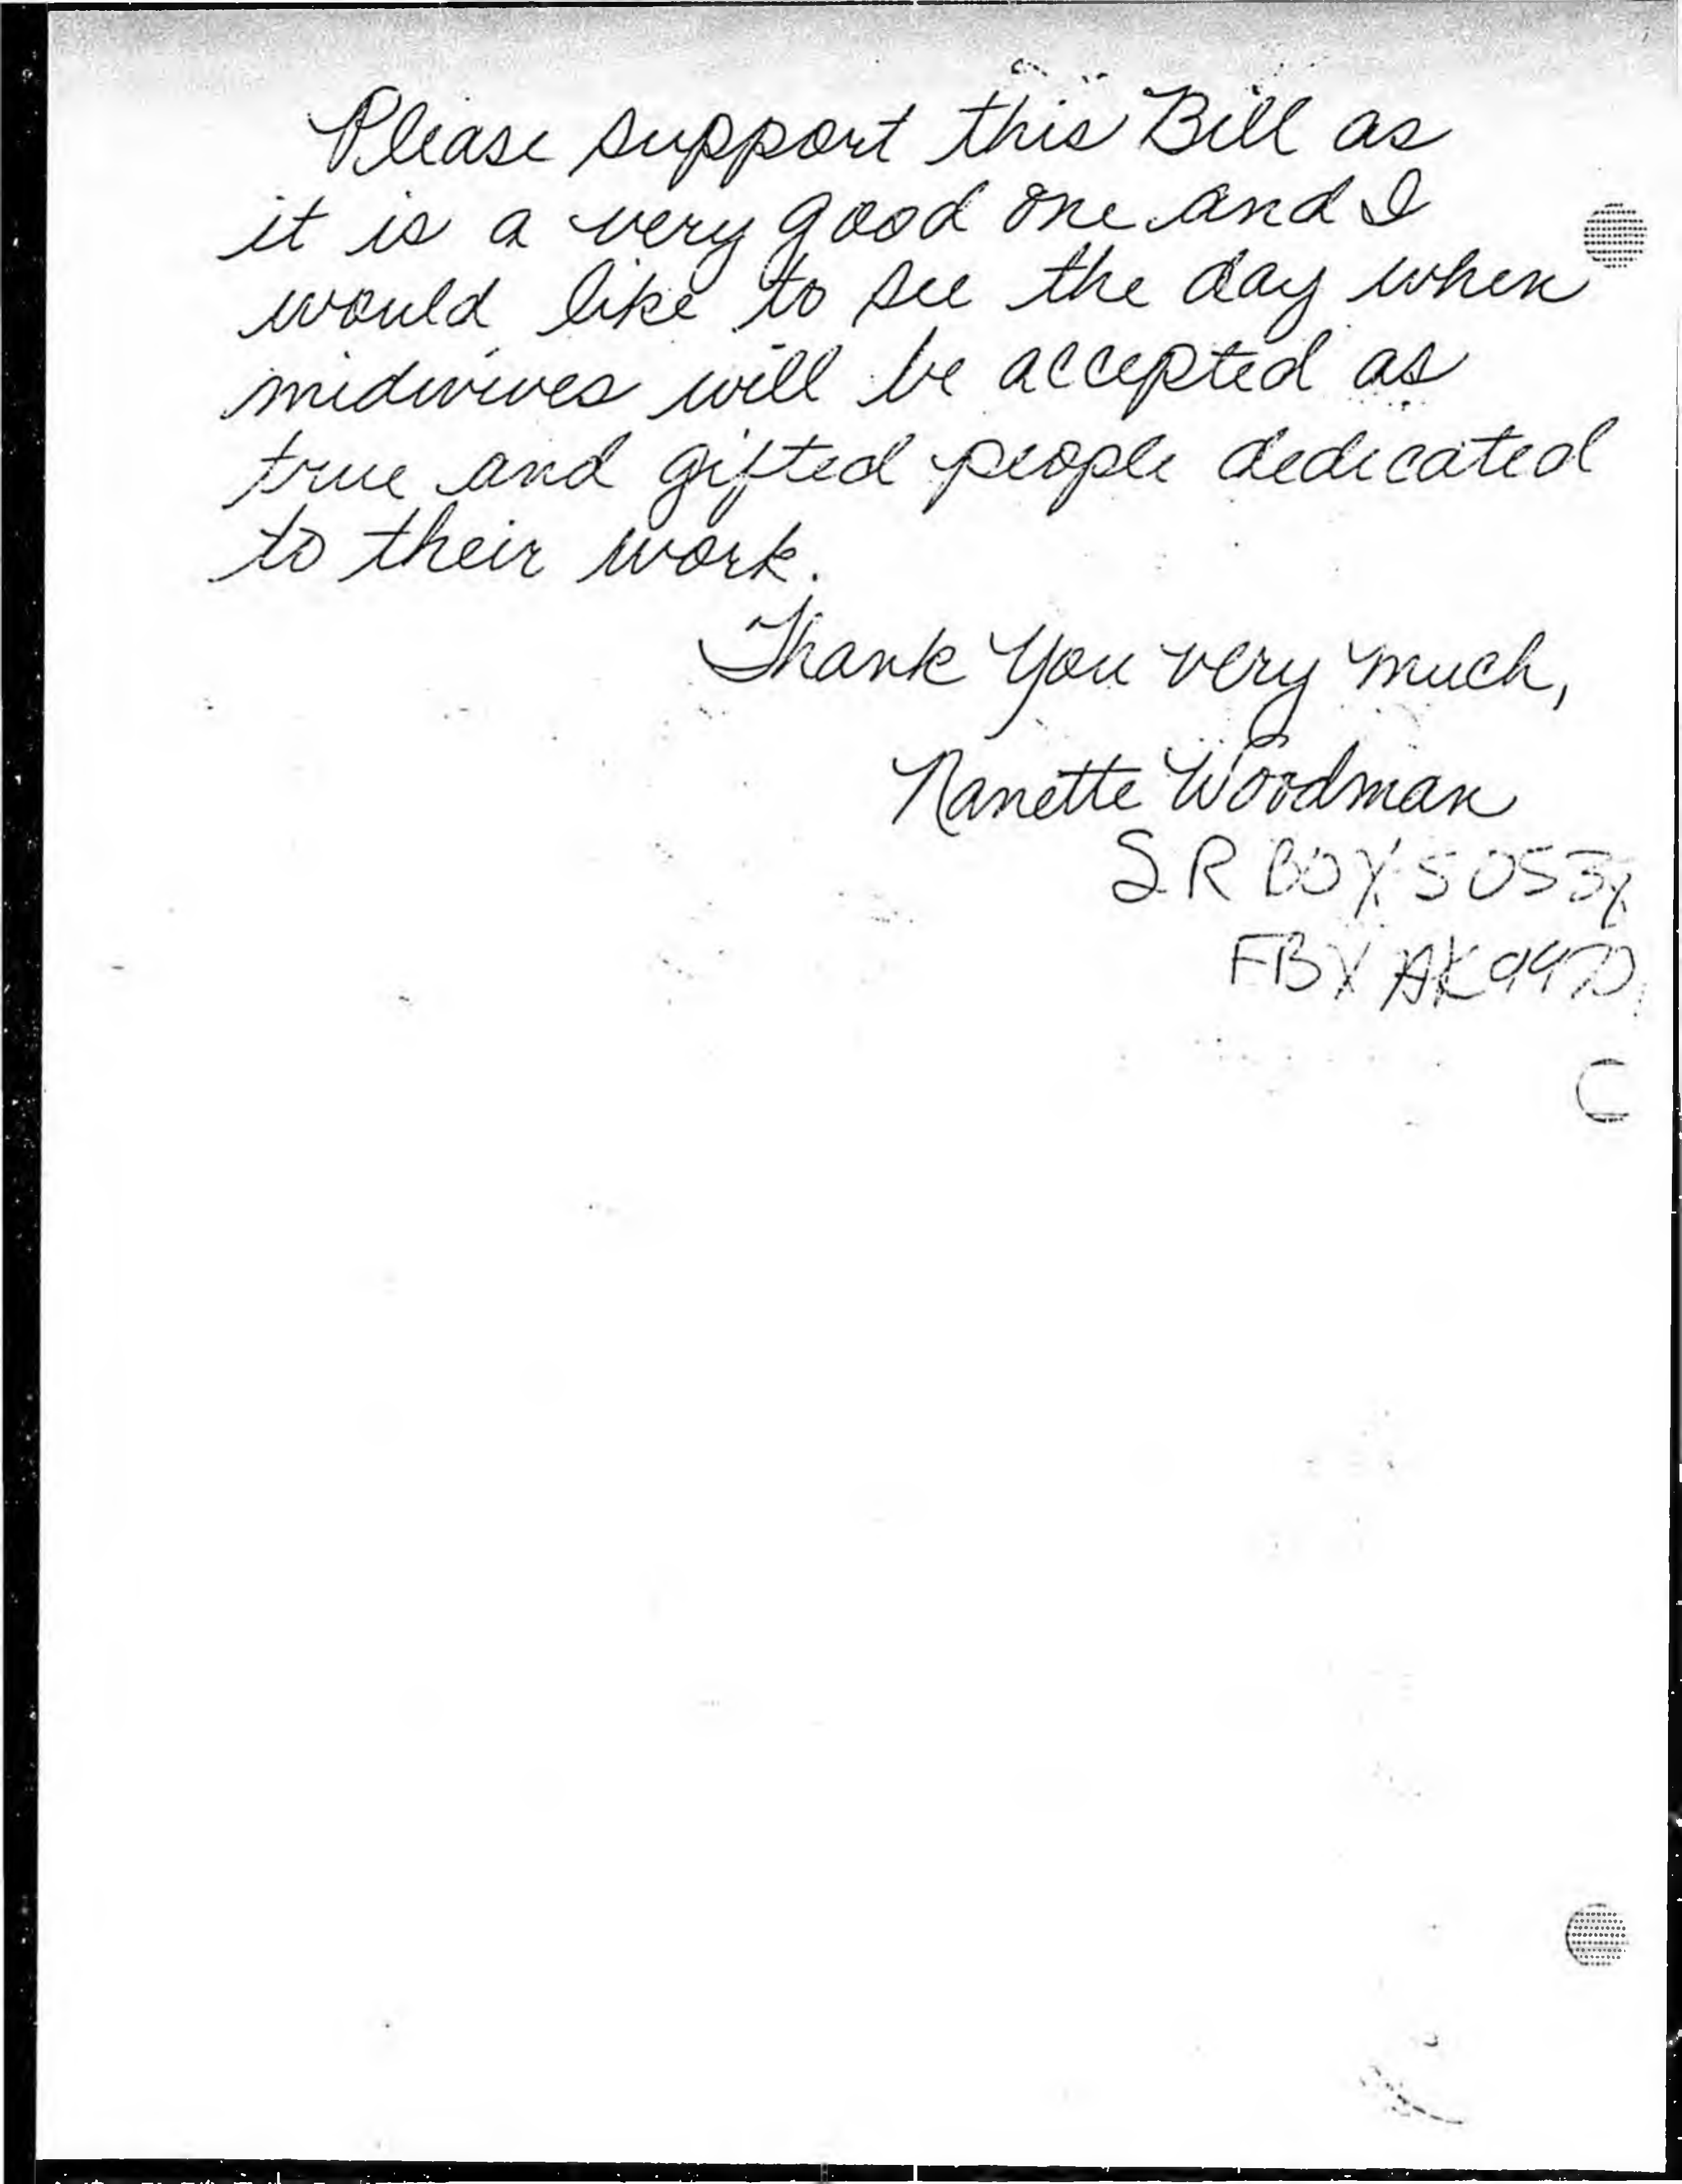 Please support this Bill as
it is a very good one and I
would like to see the day when
midwives will be accepted as
true and gifted people dedicated
to their work.
Thank You very much,
Nanette Woodman
SR BOX 5053X
FBX AK